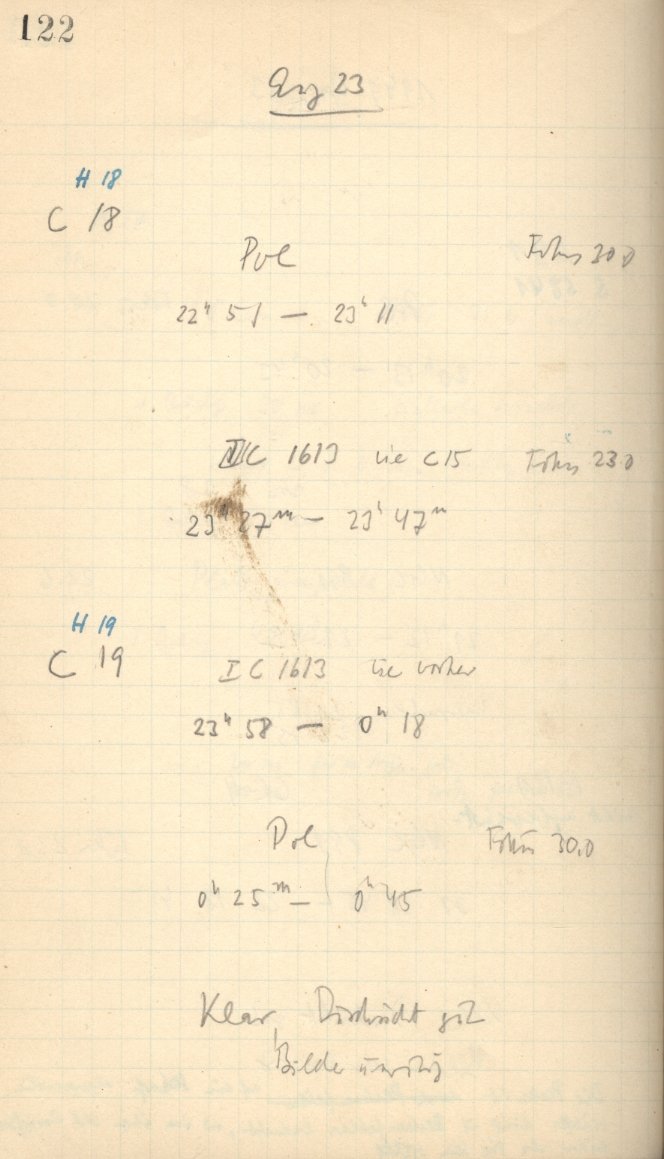 122
Aug 23
H 18
C 18
Pol Fokus 30.0
22h 51 — 23h 11
IC 1613 wie C15 Fokus 23.0
23h 27m — 23h 47m
H 19
C 19 IC 1613 wie vorher
23h 58 — 0h 18
Pol Fokus 30.0
0h 25m — 0h 45
Klar, Durchsicht gut
Bilder unruhig